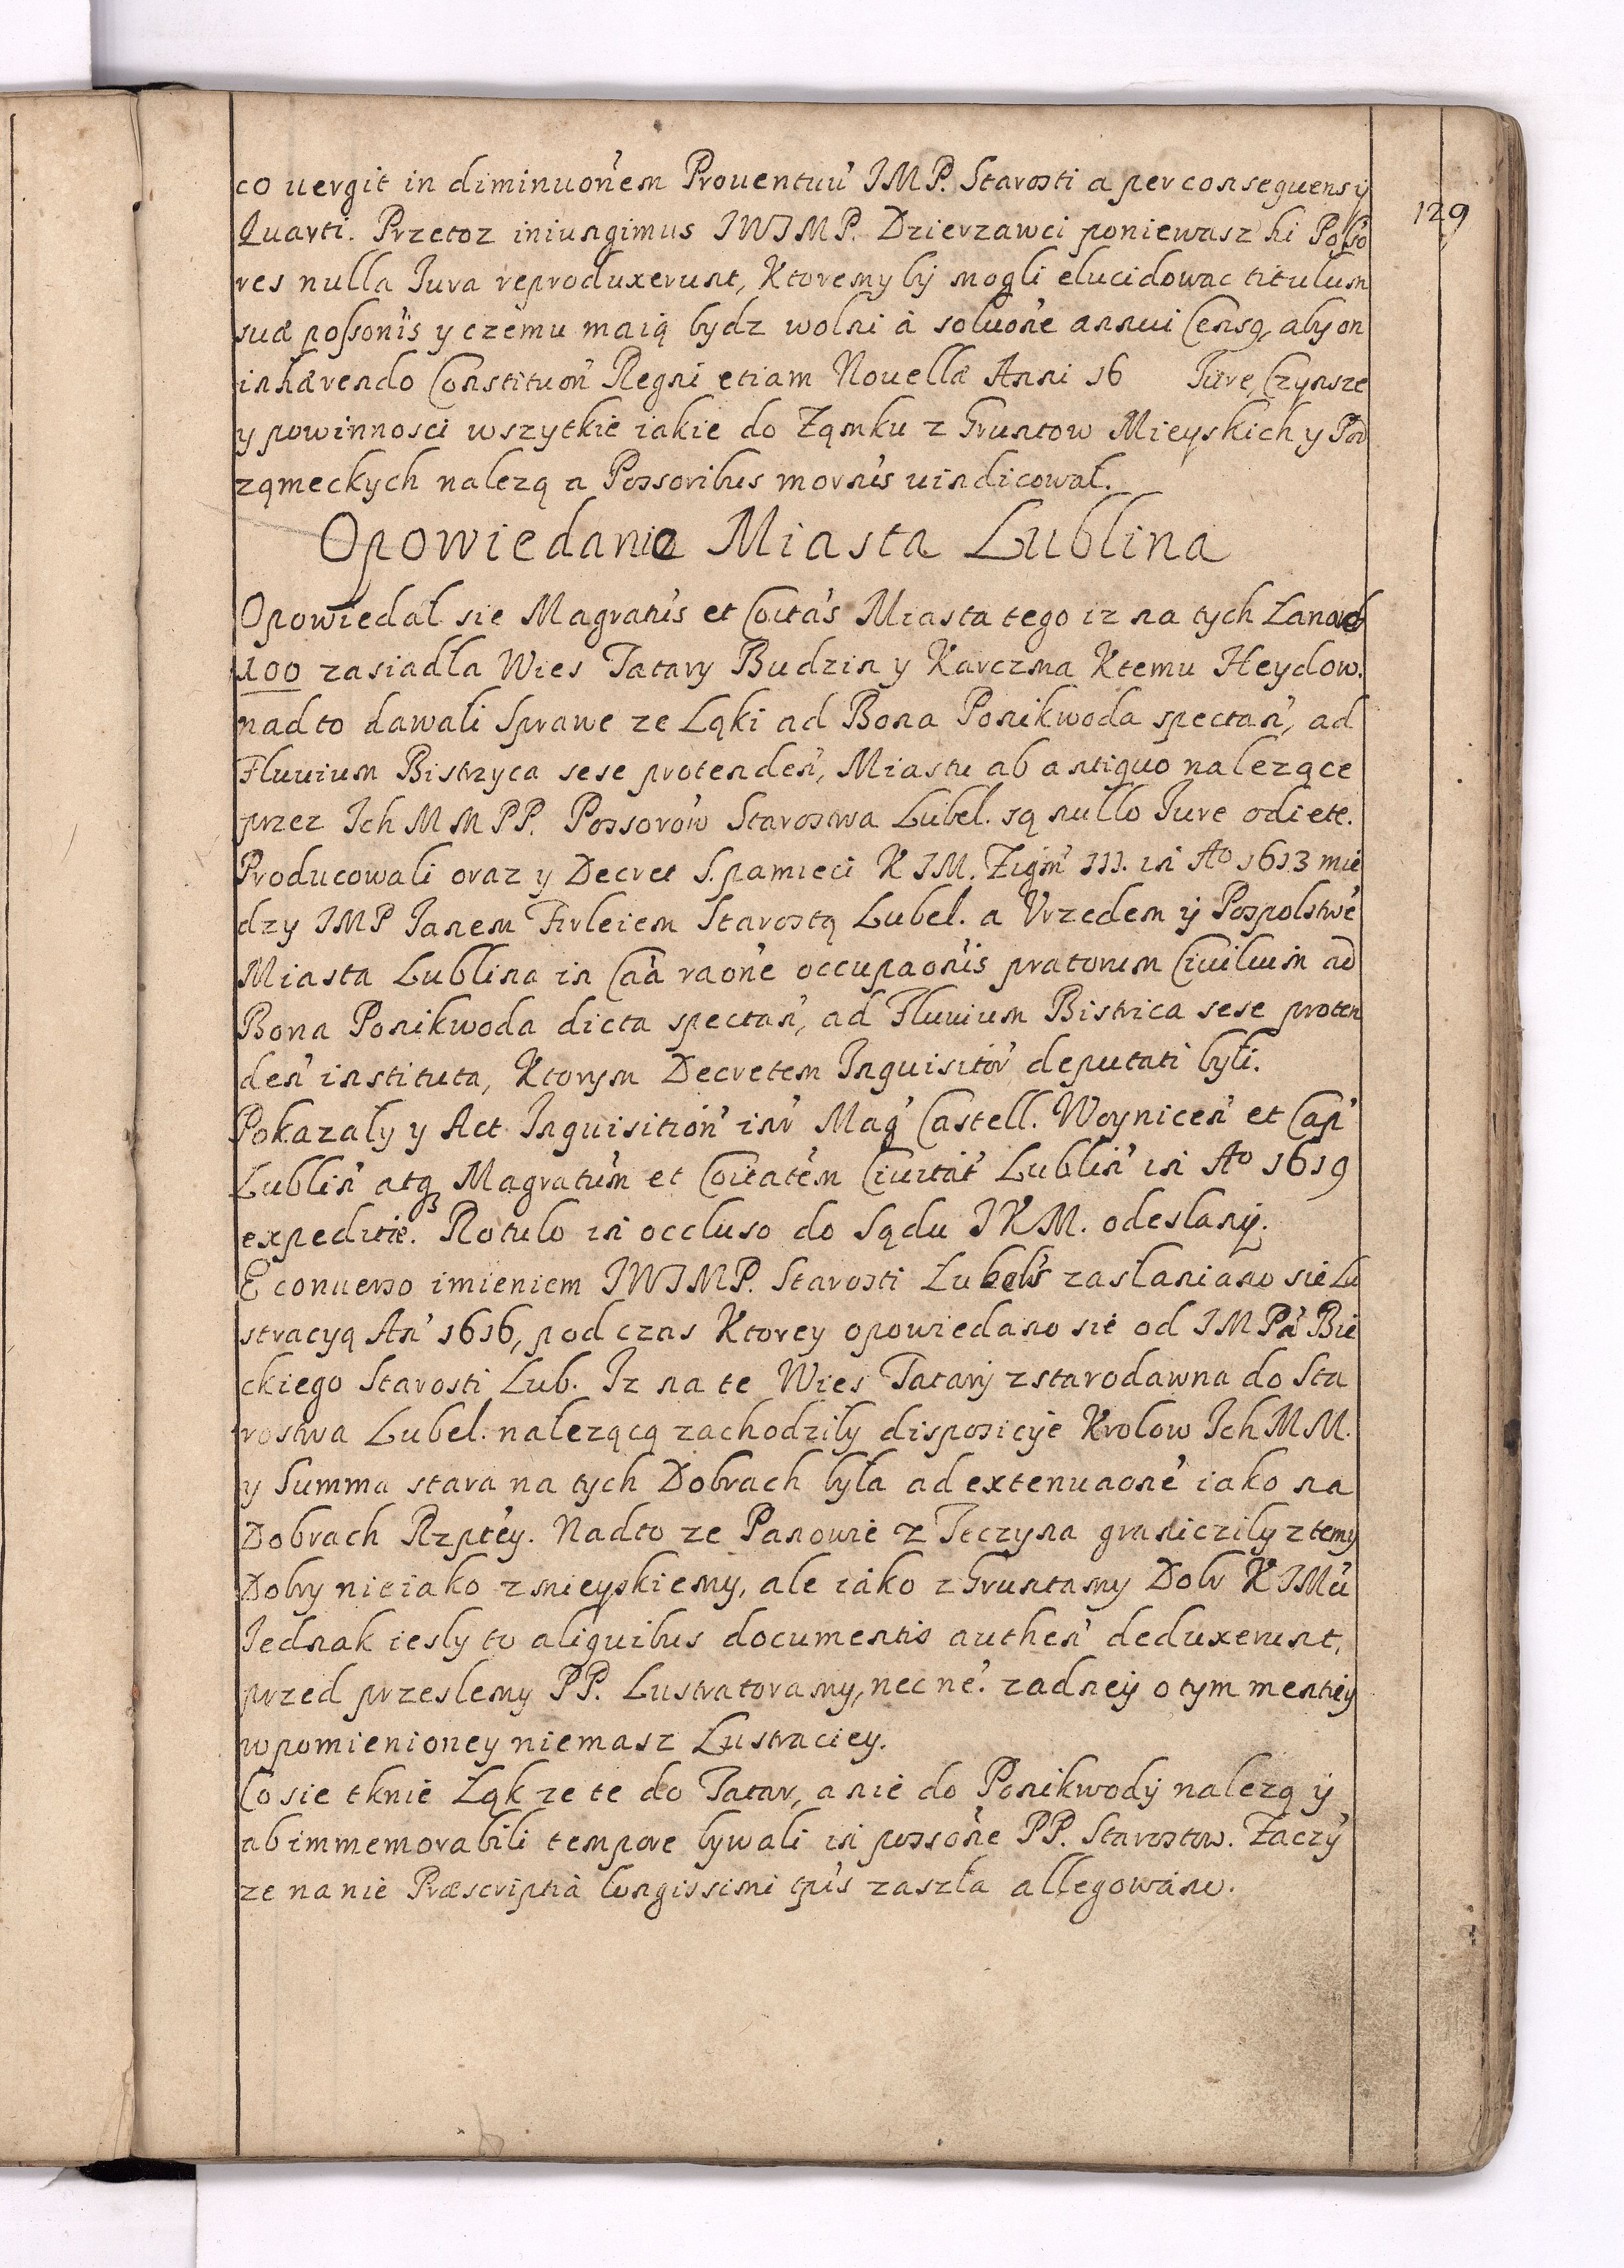 129
co uergit in diminuon̄em Prouentuū IMP. Starosti a per consequens ÿ
Quarti. Przetoz iniungimus IWIMP. Dzierzawci poniewasz hi Poſso
res nulla Iura reproduxerunt, Ktoremy bÿ mogli elucidowac titulum
suæ poſsonīs y czemu maią bydz wolni à soluon̄e annui Censq, aby on
inhærendo Constituon̄ Regni etiam Nouellæ Anni 16 Iure Czynsze
y powinnosci wszytkie iakie do Ząmku z Gruntow Mieyskich y Pod
ząmeckych nalezą a Possoribus mornīs uindicował.
Opowiedanie Miasta Lublina
Opowiedał sie Magratūs et Coitās Miasta tego iz na tych Łanow
100 zasiadła Wies Tatary Budzin y Karczma Ktemu Heydow.
nadto dawali Sprawe ze Ląki ad Bona Ponikwoda spectan̄, ad
Fluuium Bistrzyca sese protenden̄, Miastu ab antiquo nalezące
przez Ich MMPP. Possorōw Starostwa Lubel. są nullo Iure odiete.
Producowali oraz y Decret S. pamieci K IM. Zigm̄ III. in Aº 1613 mie
dzy IMP Ianem Firleiem Starostą Lubel. a Vrzedem ÿ Pospolstwē
Miasta Lublina in Caā raon̄e occupaonīs pratorum Ciuiluim̄ ad
Bona Ponikwoda dicta spectan̄, ad Fluuium Bistrica sese proten
den̄ instituta, Ktorym Decretem Inquisitōr deputati byli.
Pokazały y Act Inquisitiōn inr̄ Maḡ Castell. Woynicen̄ et Cap̄
Lublin̄ atqꝫ Magratūm et Coitatēm Ciuitāt Lublin̄ in Aº 1619
expeditiē. Rotulo in occluso do Sądu IKM. odesłanÿ.
E conuerso imieniem IWIMP. Starosti Lubels̄ zasłaniano sie Lu
stracyą An̄ 1616, podczas Ktorey opowiedano sie od IMPā Bie
ckiego Starosti Lub. Iz na te Wies Tatarÿ z starodawna do Sta
rostwa Lubel. nalezącą zachodziły disposicÿe Krolow Ich MM.
y Summa stara na tych Dobrach była ad extenuaonē iako na
Dobrach Rzptēy. Nadto ze Panowie z Teczyna graniczily z temy
Dobry nie iako z mieyskiemy, ale iako z Gruntamy Dobr K IMū
Iednak iesly to aliquibus documentis authen̄ deduxerunt,
przed przeslemy PP. Lustratoramy, nec ne. zadneÿ o tym mentieÿ
w pomienioney niemasz Lustraciey.
Co sie tknie Ląk ze te do Tatar, a nie do Ponikwodÿ nalezą ÿ
ab immemorabili tempore bywali in possōne PP. Starostow. Zaczȳ
ze na nie Præscriptia longissimi tp̄is zaszła allegowano.